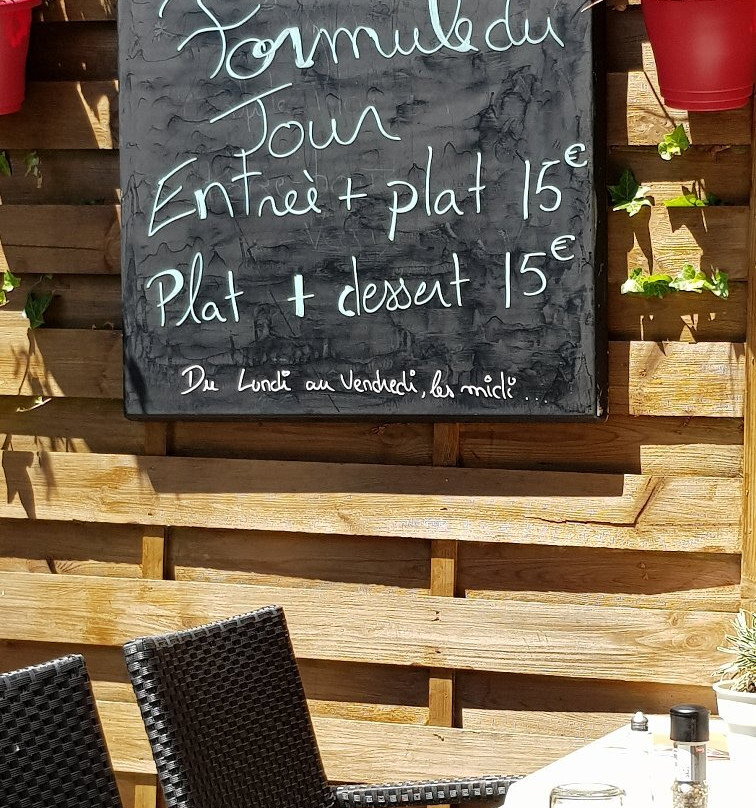 Formule du
Jour
Entreè + plat 15€
Plat + dessert 15€
Du Lundi au Vendredi, les midi...